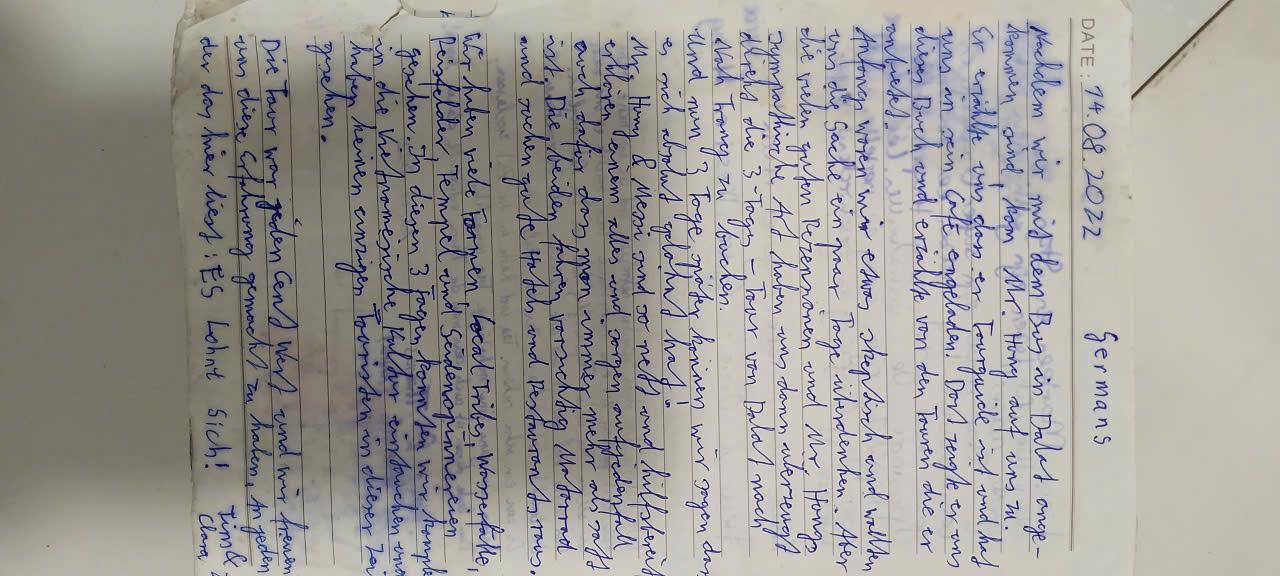 DATE: 14.08.2022 Germans
Nachdem wir mit dem Bus in Dalat ange-
kommen sind, kam Mr. Hong auf uns zu.
Er erzählte uns das er Tourguide ist und hat
uns in sein Café eingeladen. Dort zeigte er uns
dieses Buch und erzählte von den Touren die er
anbietet.
Anfangs waren wir etwas skeptisch und wollten
uns die Sache ein paar Tage überdenken. Aber
die vielen guten Rezensionen und Mr Hungs
sympathische Art haben uns dann überzeugt
direkt die 3-Tages-Tour von Dalat nach
Nah Trang zu buchen.
Und nun 3 Tage später können wir sagen das
es sich absolut gelohnt hat!
Mr. Hong & Messi sind so nett und hilfsbereit
erklären einem alles und sorgen auf jedenfall
auch dafür das man immer mehr als satt
ist. Die beiden fahren vorsichtig Motorrad
und suchen gute Hotels und Restaurants raus.
Wir haben viele Farmen, "Local Tribes", Wasserfälle,
Reisfelder, Tempel und Seidenspinnereien
gesehen. In diesen 3 Tagen konnten wir
in die Vietnamesische Kultur eintauchen und
haben keinen einzigen Touristen in dieser Zei
gesehen.
Die Tour war jeden Cent Wert und wir freuen
uns diese Erfahrung gemacht zu haben, An jeden
der das hier liest: ES Lohnt Sich!
Tim &
Clara